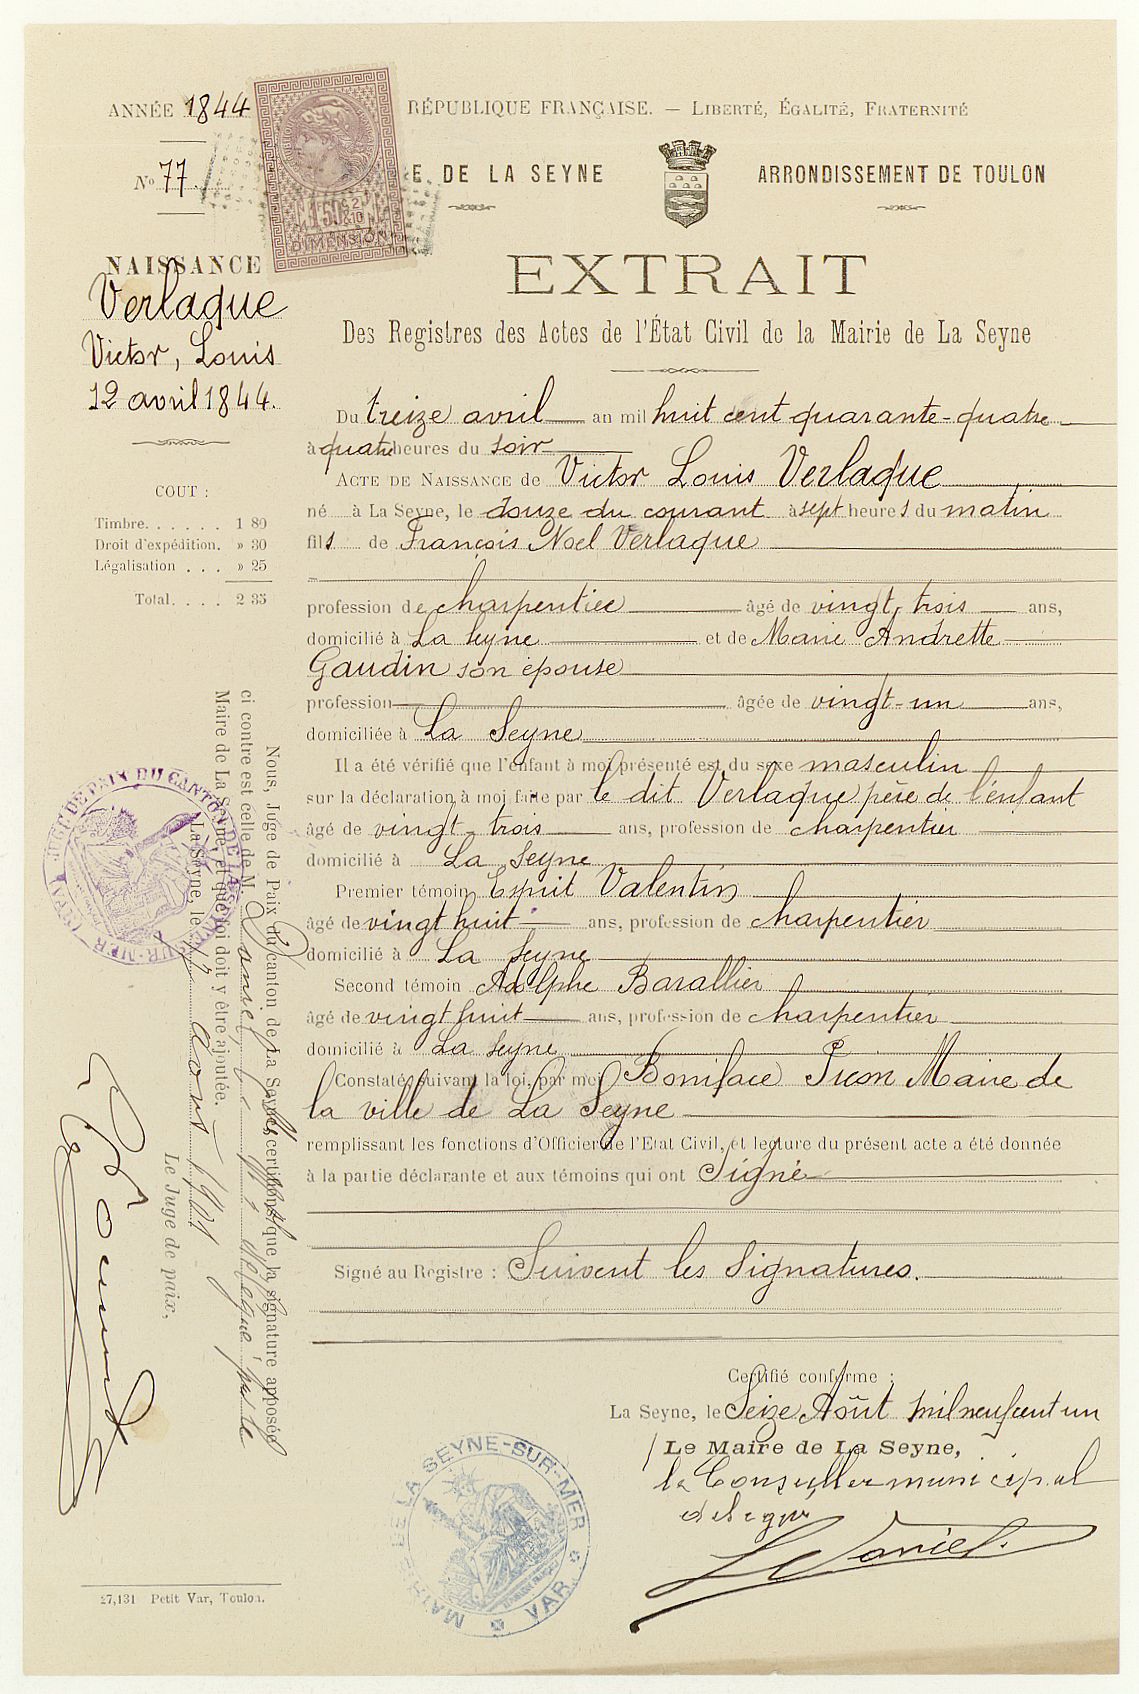 ANNÉE 1844
RÉPUBLIQUE FRANÇAISE. — LIBERTÉ, ÉGALITÉ, FRATERNITÉ
No 77
E DE LA SEYNE
ARRONDISSEMENT DE TOULON
DIMENSION
NAISSANCE
Verlaque
Victor, Louis
12 avril 1844.
COUT :
Timbre. . . . . . 1 80
Droit d'expédition. » 30
Légalisation . . . » 25
Total. . . . 2 35
EXTRAIT
Des Registres des Actes de l'État Civil de la Mairie de La Seyne
Du treize avril an mil huit cent quarante-quatre
à quatre heures du soir
ACTE DE NAISSANCE de Victor Louis Verlaque
né à La Seyne, le douze du courant à sept heures du matin
fils de François Noel Verlaque
profession de charpentier âgé de vingt trois ans,
domicilié à La Seyne et de Marie Andrette
Gaudin son épouse
profession âgée de vingt-un ans,
domiciliée à La Seyne
Il a été vérifié que l'enfant à moi présenté est du sexe masculin
sur la déclaration à moi faite par le dit Verlaque père de l'enfant
âgé de vingt trois ans, profession de charpentier
domicilié à La Seyne
Premier témoin Esprit Valentin
âgé de vingt huit ans, profession de charpentier
domicilié à La Seyne
Second témoin Adolphe Barallier
âgé de vingt huit ans, profession de charpentier
domicilié à La Seyne
Constaté, suivant la loi, par moi Boniface Picon Maire de
la ville de La Seyne
remplissant les fonctions d'Officier de l'Etat Civil, et lecture du présent acte a été donnée
à la partie déclarante et aux témoins qui ont Signé
Signé au Registre : Suivent les signatures.
Certifié conforme :
La Seyne, le Seize Août mil neuf cent un
Le Maire de La Seyne,
le Conseiller municipal
délégué
L Daniel
MAIRIE DE LA SEYNE-SUR-MER
VAR
Nous, Juge de Paix du canton de La Seyne, certifions que la signature apposée
ci contre est celle de M. Daniel délégué par le
Maire de La Seyne, et que foi doit y être ajoutée.
La Seyne, le 17 Août 1901
Le Juge de paix,
JUGE DE PAIX DU CANTON DE LA SEYNE-SUR-MER
27,131 Petit Var, Toulon.